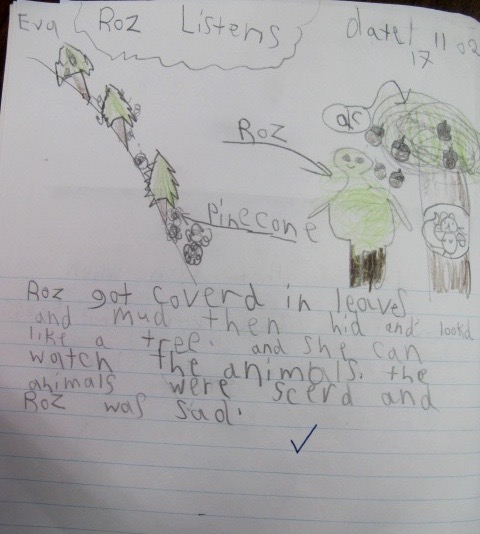 Eva Roz Listens date! 11 02
17
Roz
Pinecone
Roz got coverd in leaves
and mud then hid and lookd
like a tree. and she can
watch the animals. the
animals were scerd and
Roz was sad.